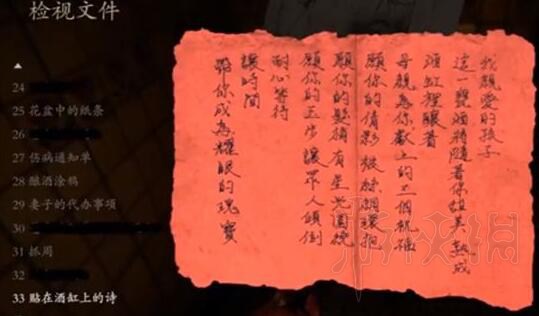 检视文件
24
25 花盆中的纸条
26
27 伤病通知单
28 酿酒涂鸦
29 妻子的代办事项
30
31 抓周
32
33 贴在酒缸上的诗
我親愛的孩子
這一甕酒將隨著你美熟成
酒缸裡釀著
母親為你獻上的三個祝禱
願你的倩影被絲綢環抱
願你的鬢梢有星光圍繞
願你的玉步讓眾人傾倒
耐心等待
讓時間
你成為耀眼的瑰寶